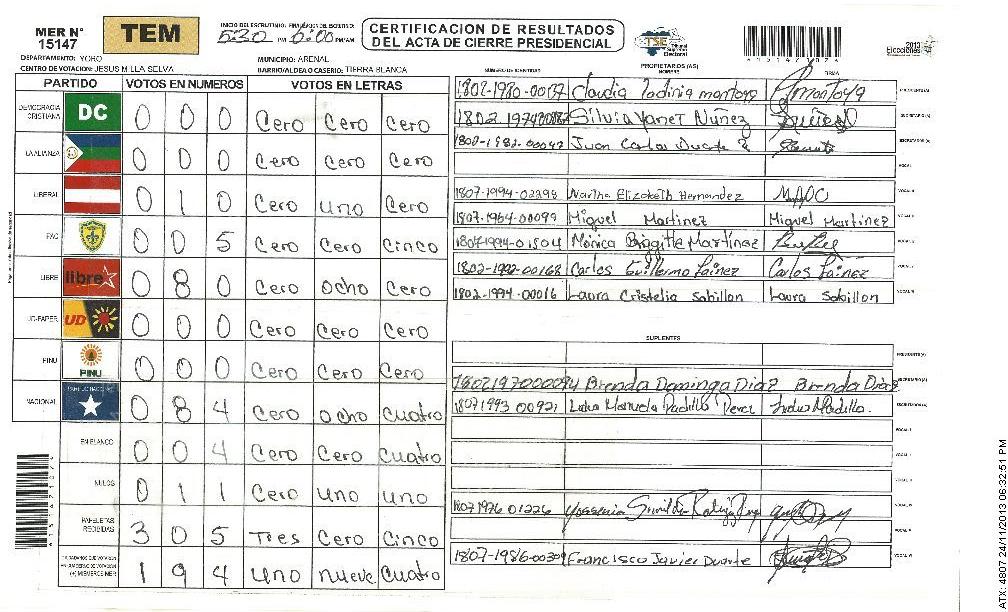 MER N° 15147
TEM
INICIO DEL ESCRUTINIO: FINALIZACION DEL ESCRUTINIO:
5:30 PM 6:00 PM/AM
CERTIFICACION DE RESULTADOS
DEL ACTA DE CIERRE PRESIDENCIAL
TSE Tribunal Supremo Electoral
2013 Elecciones
DEPARTAMENTO: YORO
MUNICIPIO: ARENAL
CENTRO DE VOTACION: JESUS MILLA SELVA
BARRIO/ALDEA O CASERIO: TIERRA BLANCA
PARTIDO VOTOS EN NUMEROS VOTOS EN LETRAS
DEMOCRACIA CRISTIANA DC 0 0 0 Cero Cero Cero
LA ALIANZA 0 0 0 Cero Cero Cero
LIBERAL 0 1 0 Cero uno Cero
PAC 0 0 5 Cero Cero Cinco
LIBRE libre 0 8 0 Cero ocho Cero
UD-FAPER UD 0 0 0 Cero Cero Cero
PINU PINU 0 0 0 Cero Cero Cero
NACIONAL 0 8 4 Cero ocho Cuatro
EN BLANCO 0 0 4 Cero Cero Cuatro
NULOS 0 1 1 Cero uno uno
PAPELETAS RECIBIDAS 3 0 5 Tres Cero Cinco
CIUDADANOS QUE VOTARON EN CUADERNO DE VOTACION (+) MIEMBROS MER 1 9 4 uno nueve Cuatro
NUMERO DE IDENTIDAD PROPIETARIOS (AS) NOMBRE FIRMA
1802-1980-00137 Claudia montoya PRESIDENTE (A)
1802 1974 Silvia Yanet Nuñez SECRETARIO (A)
Juan Carlos Duarte ESCRUTADOR (A)
VOCAL I
1807-1994-02298 Martha Elizabeth Hernandez VOCAL II
1807-1964-00099 Miguel Martinez Miguel Martinez
1807-1994-01504 Monica Brigitte Martínez
1802-1992-00168 Carlos Guillermo Lainez Carlos Lainez
1802-1994-00016 Laura Cristelia Sabillon Laura Sabillon
SUPLENTES
PRESIDENTE (A)
1802197000094 Brenda Dominga Diaz Brenda Diaz SECRETARIO (A)
1807 1993 00921 Manuela Padilla Perez ESCRUTADOR (A)
VOCAL I
1807 1976 01226
1807-1986-00309 Francisco Javier Duarte
ATX: 4807 24/11/2013 06:32:51 PM